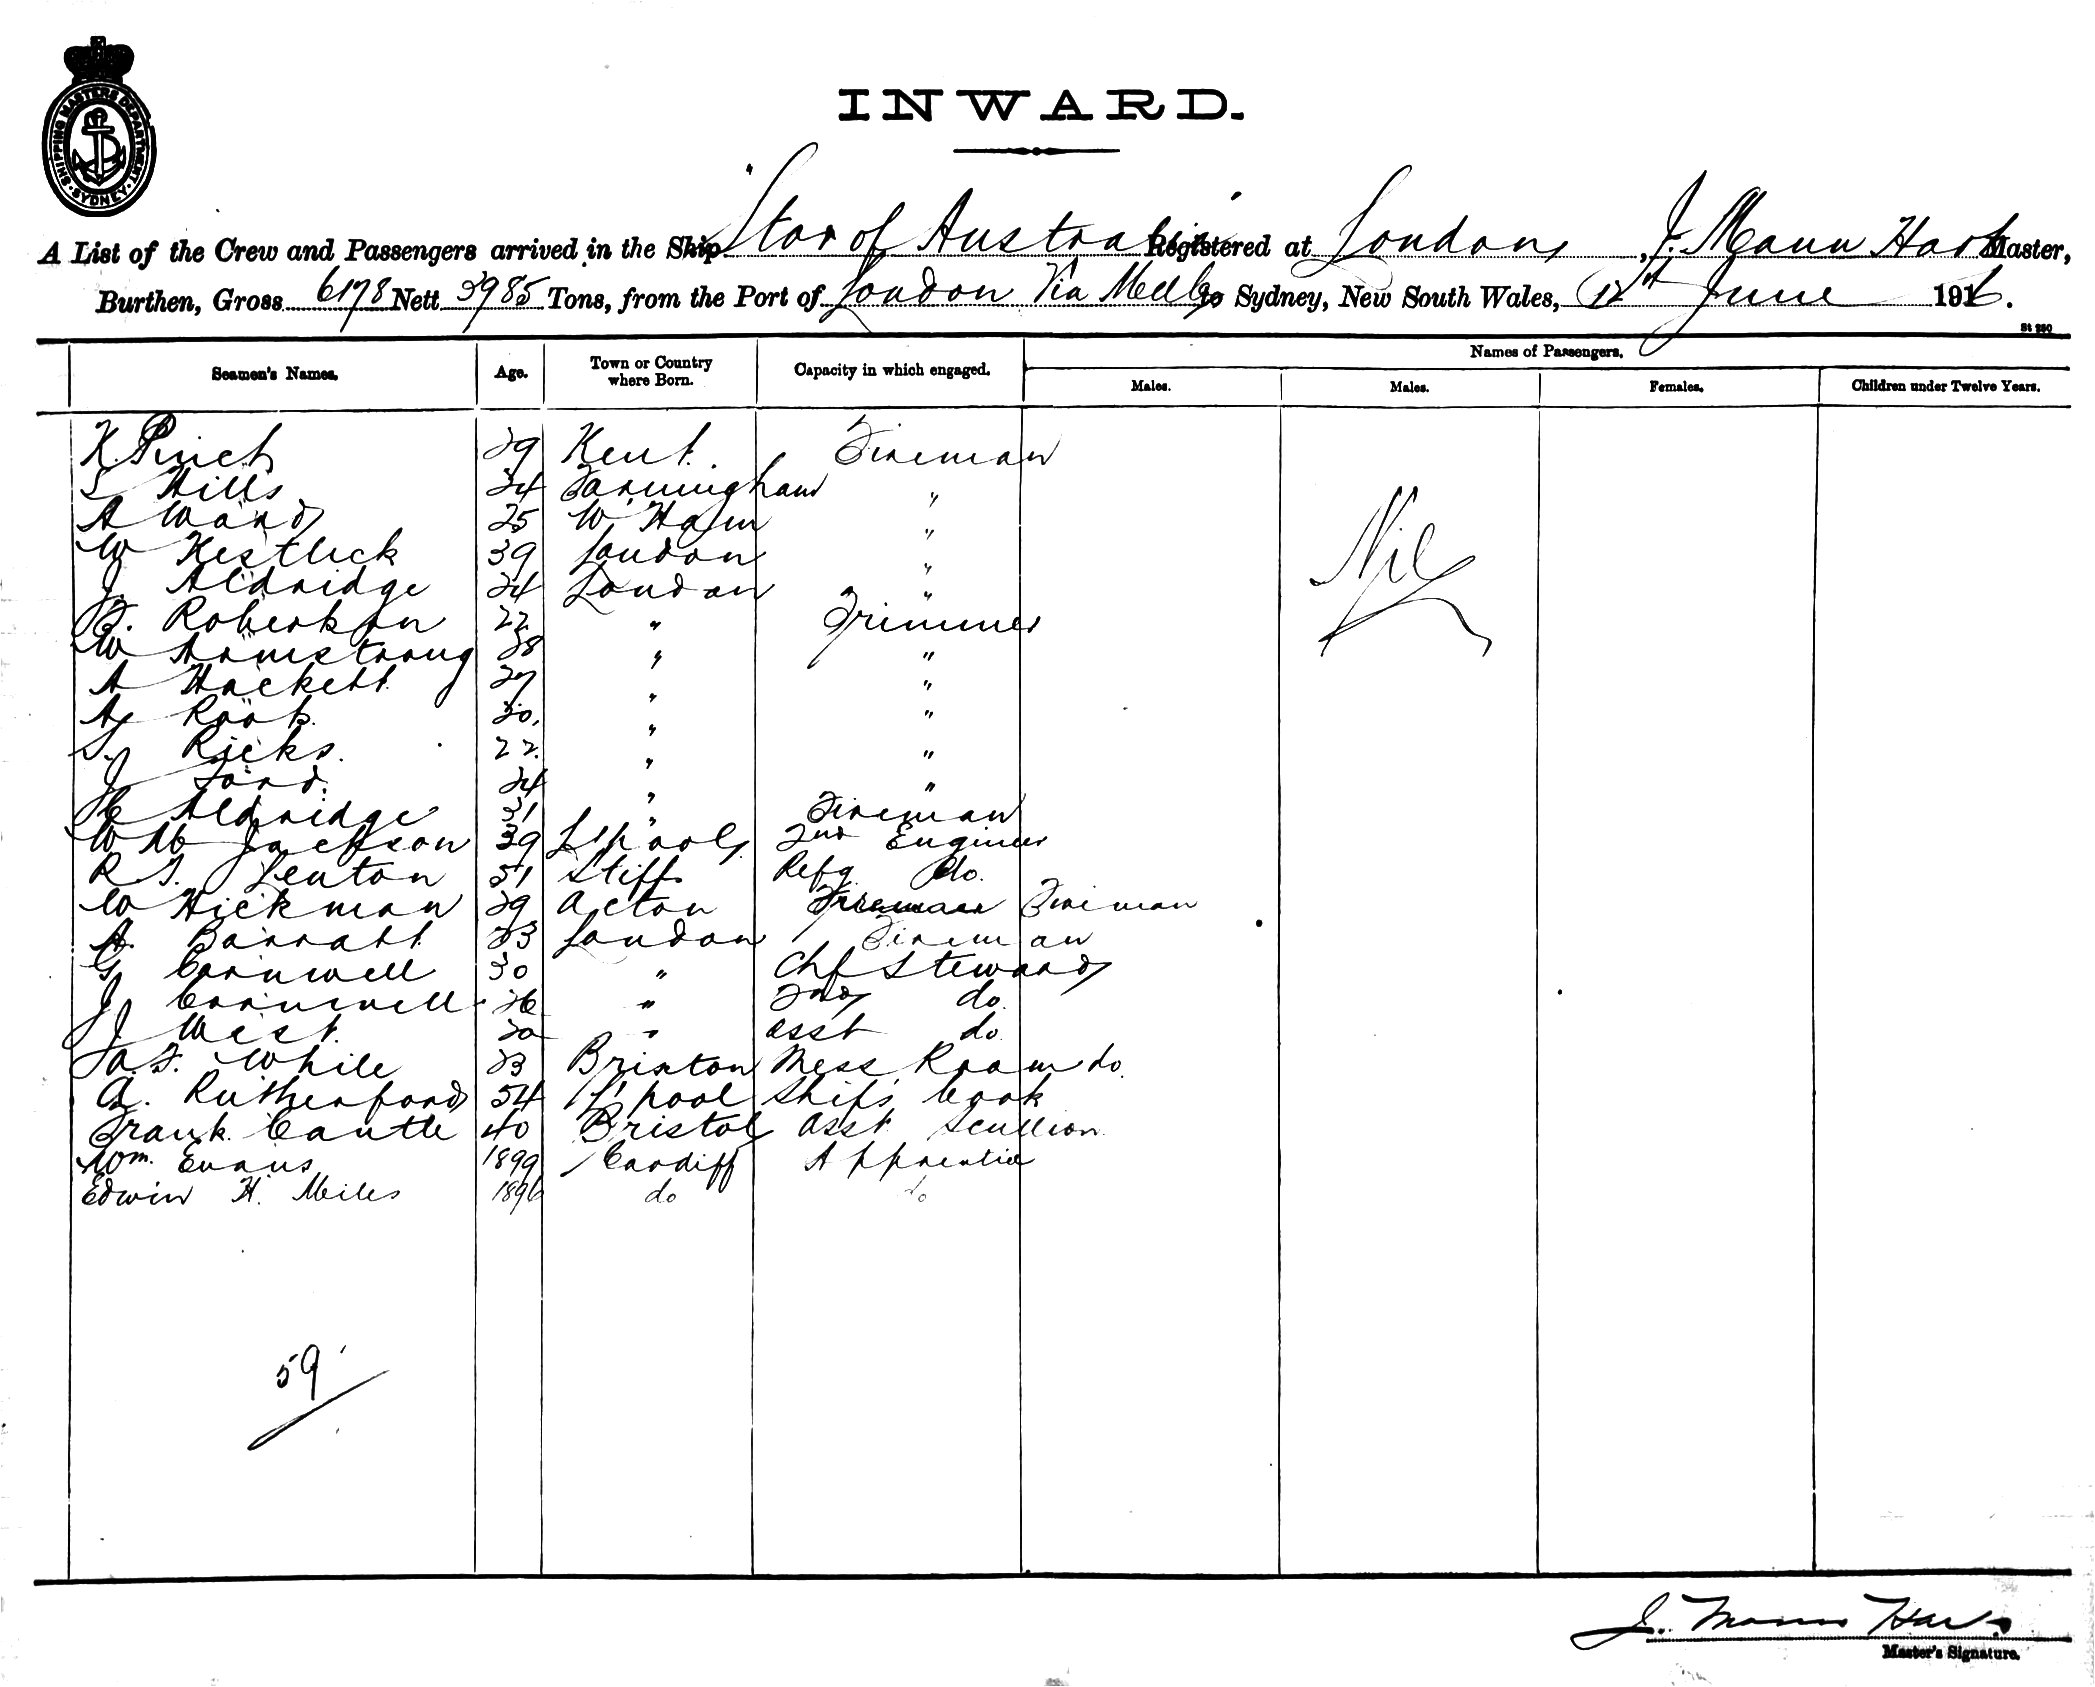 SHIPPING MASTERS DEPARTMENT. SYDNEY.
INWARD.
A List of the Crew and Passengers arrived in the Ship "Star of Australia" Registered at London, J. Mann Hart Master,
Burthen, Gross 6178 Nett 3985 Tons, from the Port of London Via Melb to Sydney, New South Wales, 12th June 1916.
St 280
Seamen's Names. Age. Town or Country where Born. Capacity in which engaged. Names of Passengers.
Males. Males. Females. Children under Twelve Years.
K. Pinch 29 Kent. Fireman
S Hills 24 Farningham "
A Ward 25 W Ham "
W Kestlick 39 London "
J. Aldridge 24 London "
Nil
F. Robertson 22 " Trimmer
W Armstrong 28 " "
A Hackett 27 " "
A Rook 20. " "
S. Ricks. 22. " "
J Ford. 24 " "
H Aldridge 31 " Fireman
W M Jackson 39 L'pool 2nd Engineer
R J. Lenton 31 Stiff Refg. do.
W Hickman 29 Acton Fireman Fireman
A. Barratt 23 London Fireman
G Cornwell 30 " Chf Steward
J Cornwell 26 " 2nd do.
J West. 20 " asst do
F. White 23 Brixton Mess Room do.
A. Rutherford 54 L'pool Ship's Cook
Frank Cantle 40 Bristol Asst Scullion.
Wm. Evans 1899 Cardiff Apprentice
Edwin H. Miles 1896 do do
59
J. Mann Hart
Master's Signature.